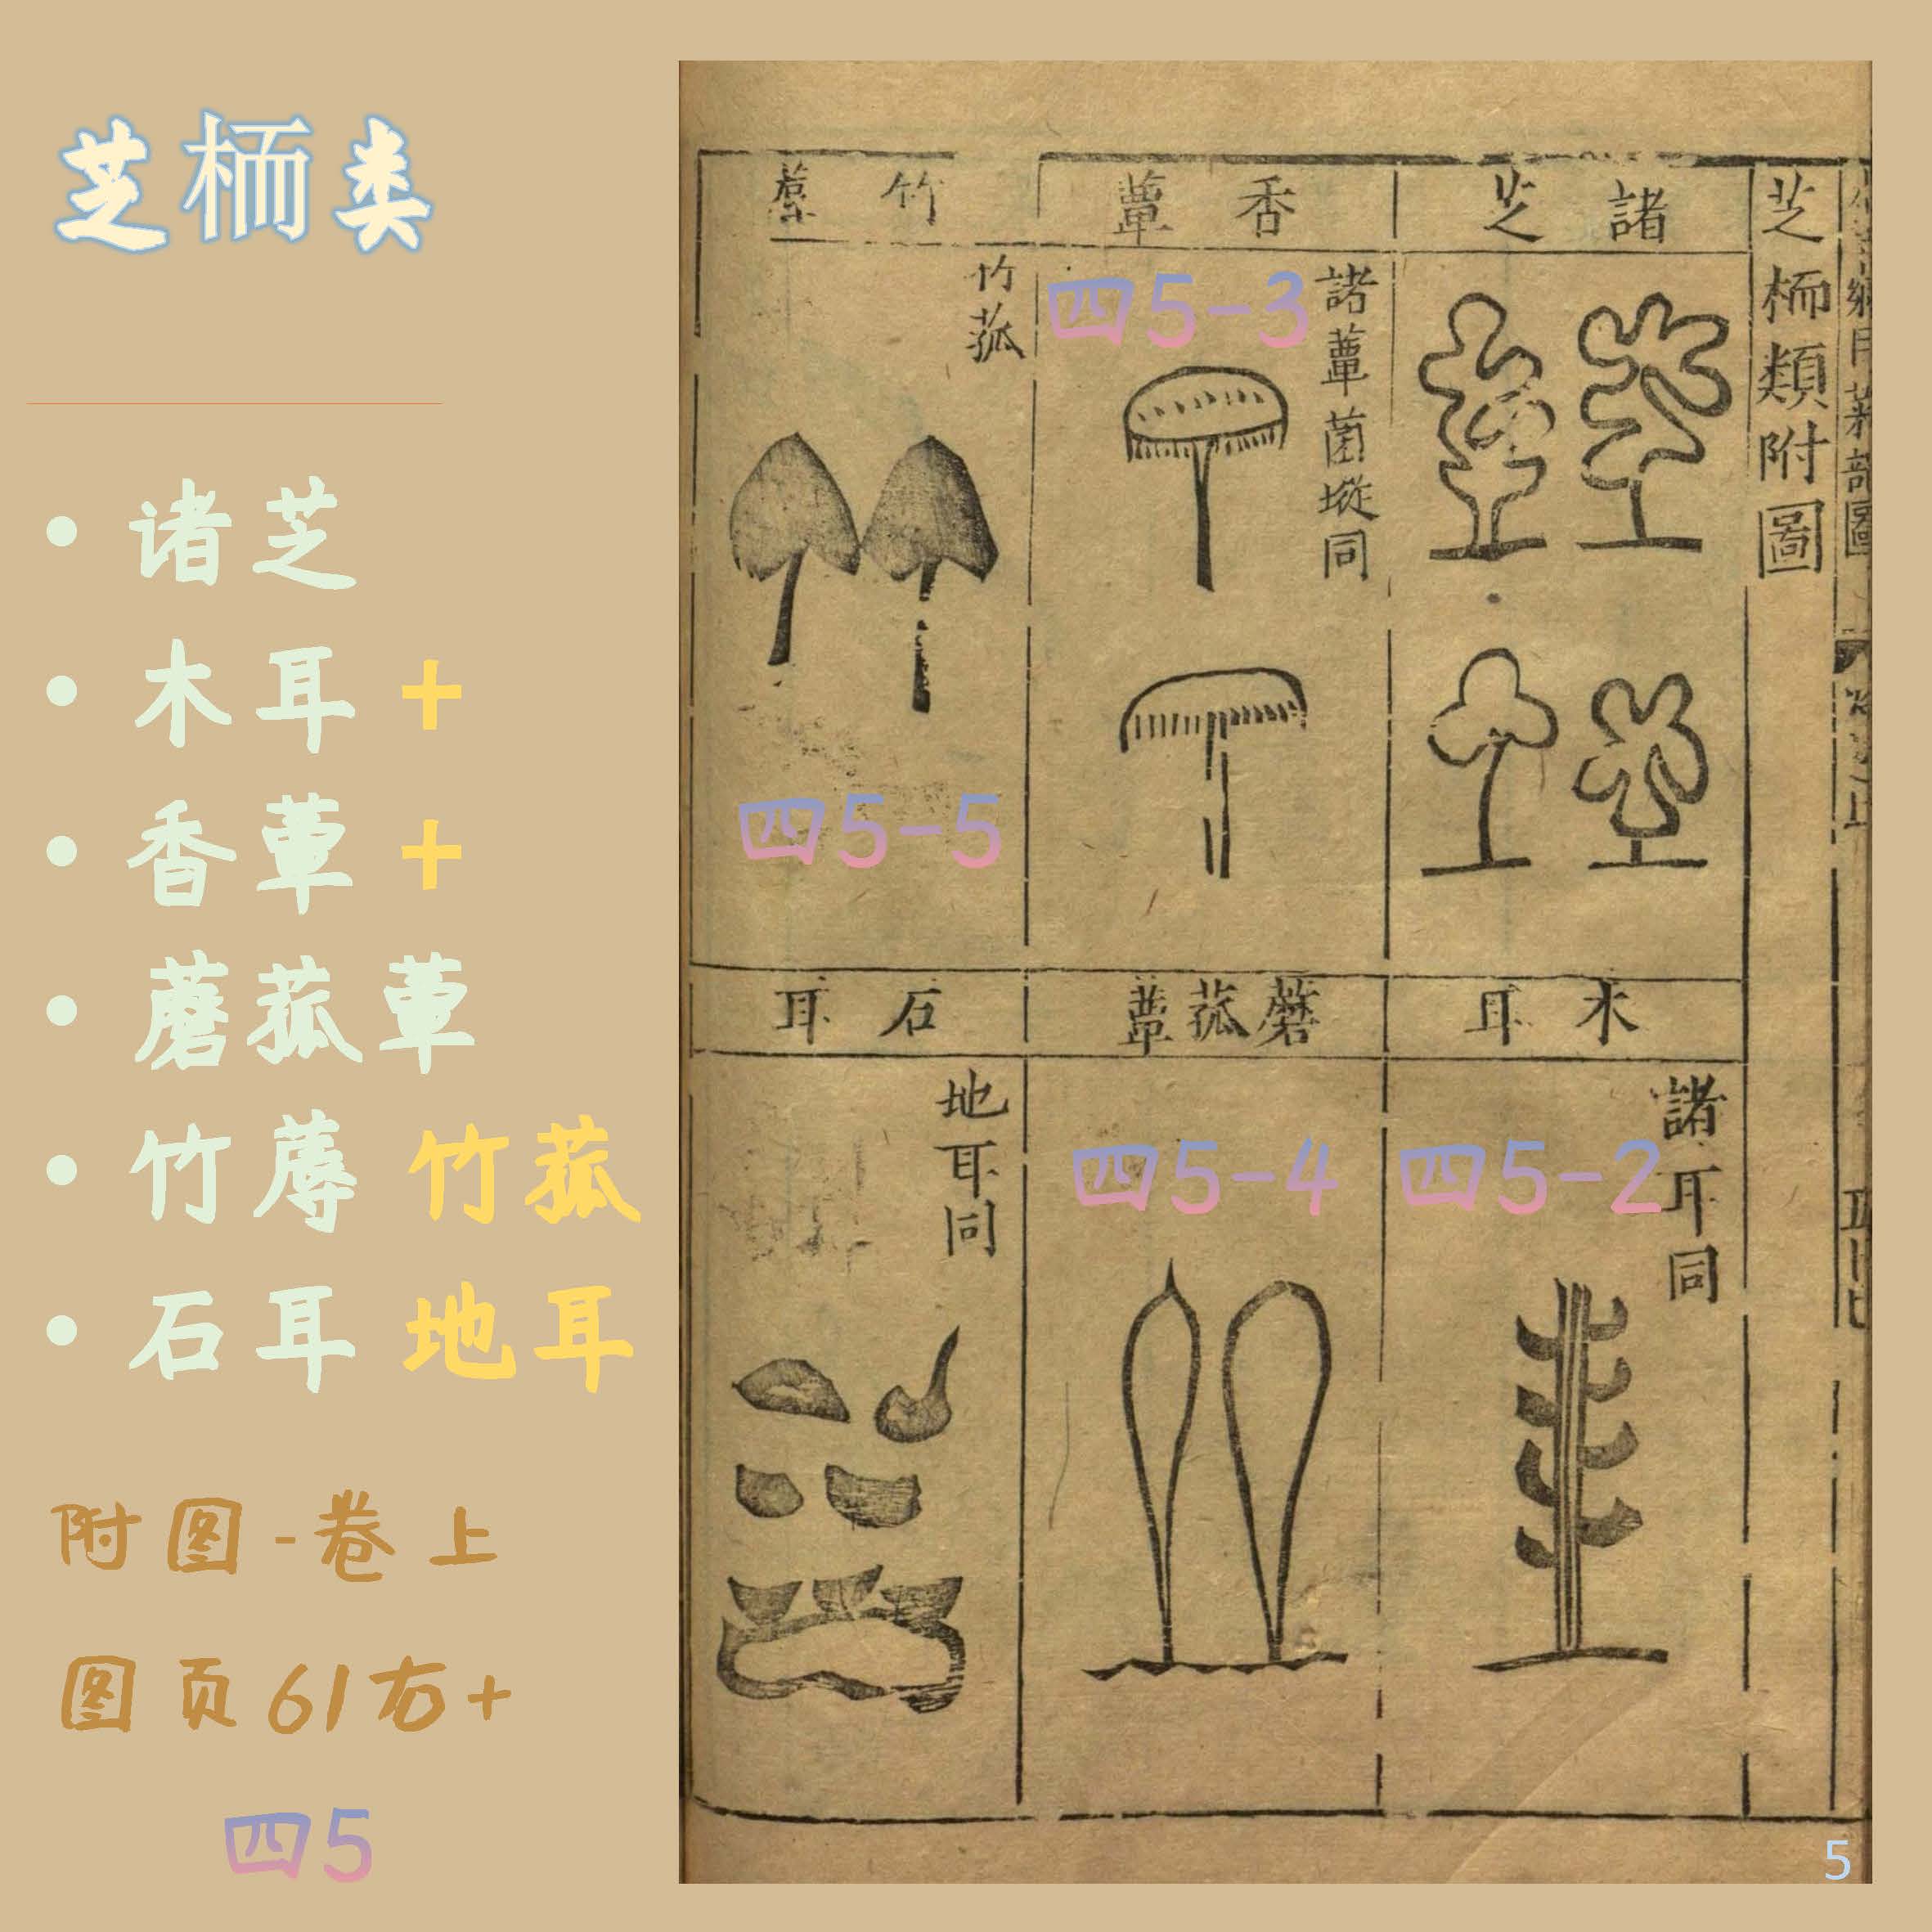 芝栭类
诸芝
木耳 +
香蕈 +
蘑菰蕈
竹蓐 竹菰
石耳 地耳
附图-卷上
图页61右+
四5
芝栭類附圖
諸芝
香蕈
諸蕈菌㙡同
四5-3
竹
竹菰
四5-5
木耳
諸耳同
四5-2
蘑菰蕈
四5-4
石耳
地耳同
5